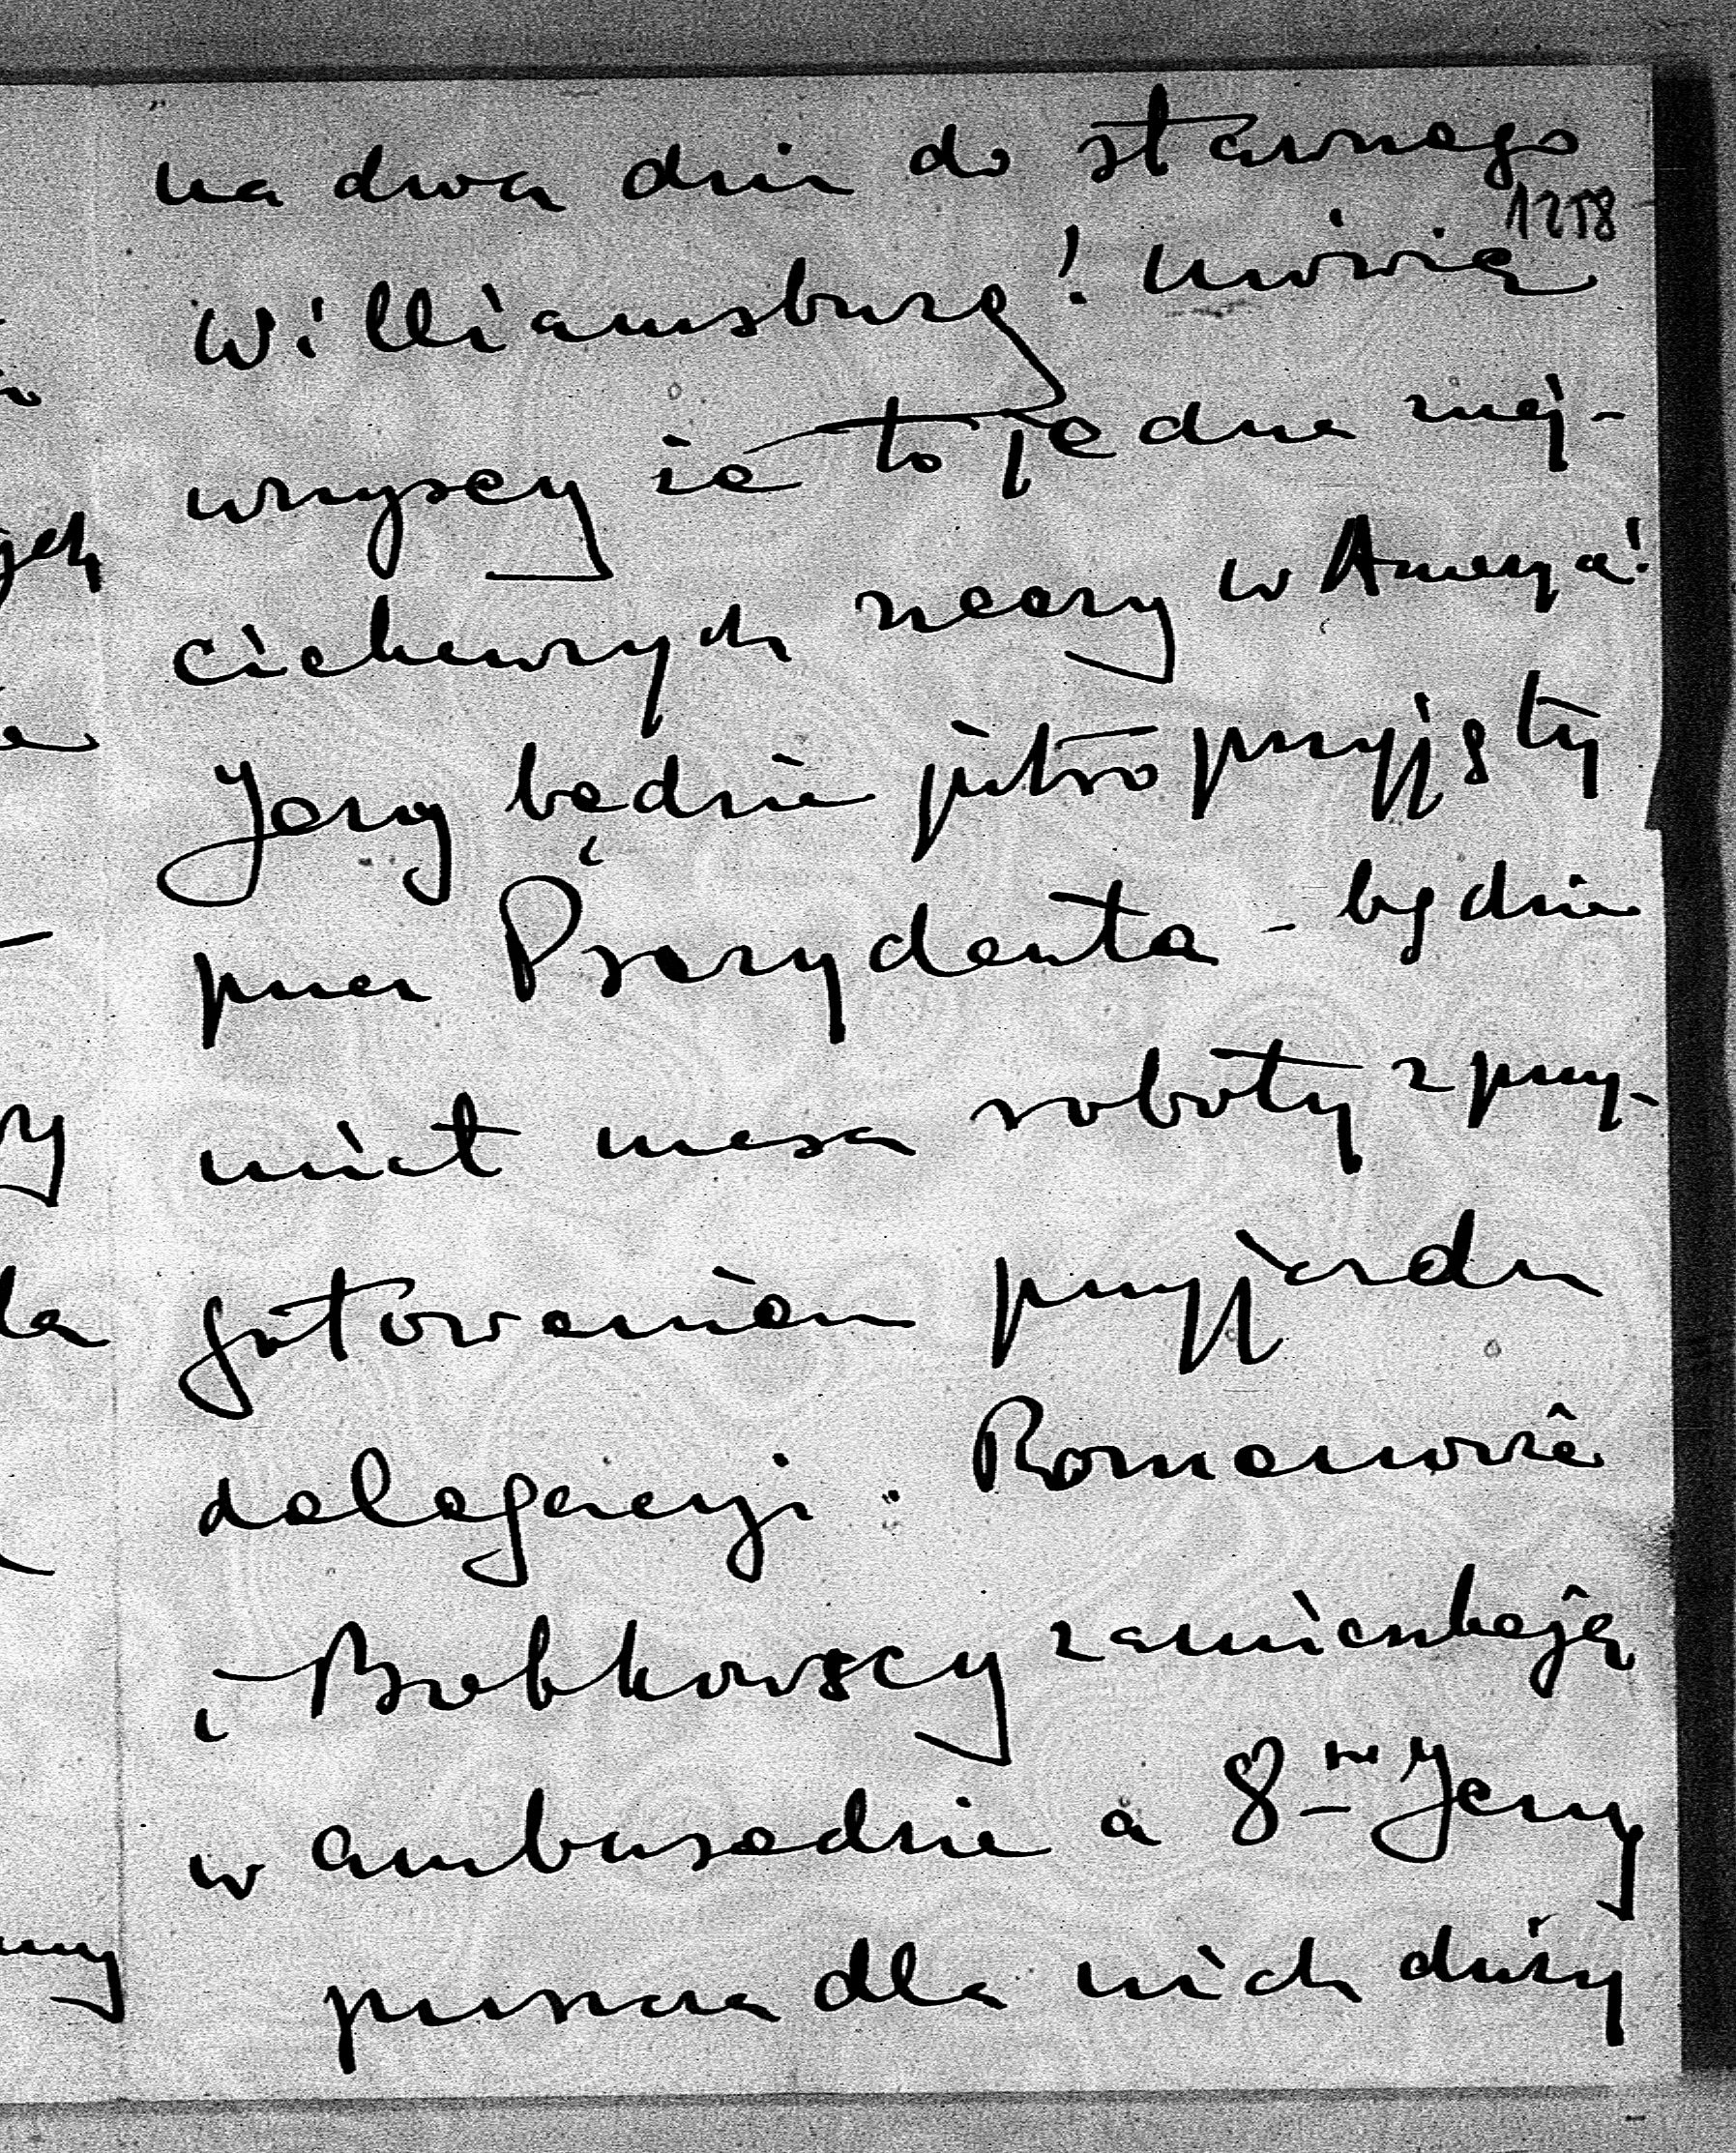 na dwa dni do sławnego
1258
Williamsburg! mówią
wszyscy że to jedna naj-
ciekawszych rzeczy w Ameryce!
Jerzy będzie jutro przyjęty
przez Prezydenta - będzie
miał masa roboty z przy-
gotowaniem przyjazdu
delegacyi. Romanowie
i Bobkowscy zamieszkają
w ambasadzie a 8-my Jerzy
prasza dla nich duży
ych
la